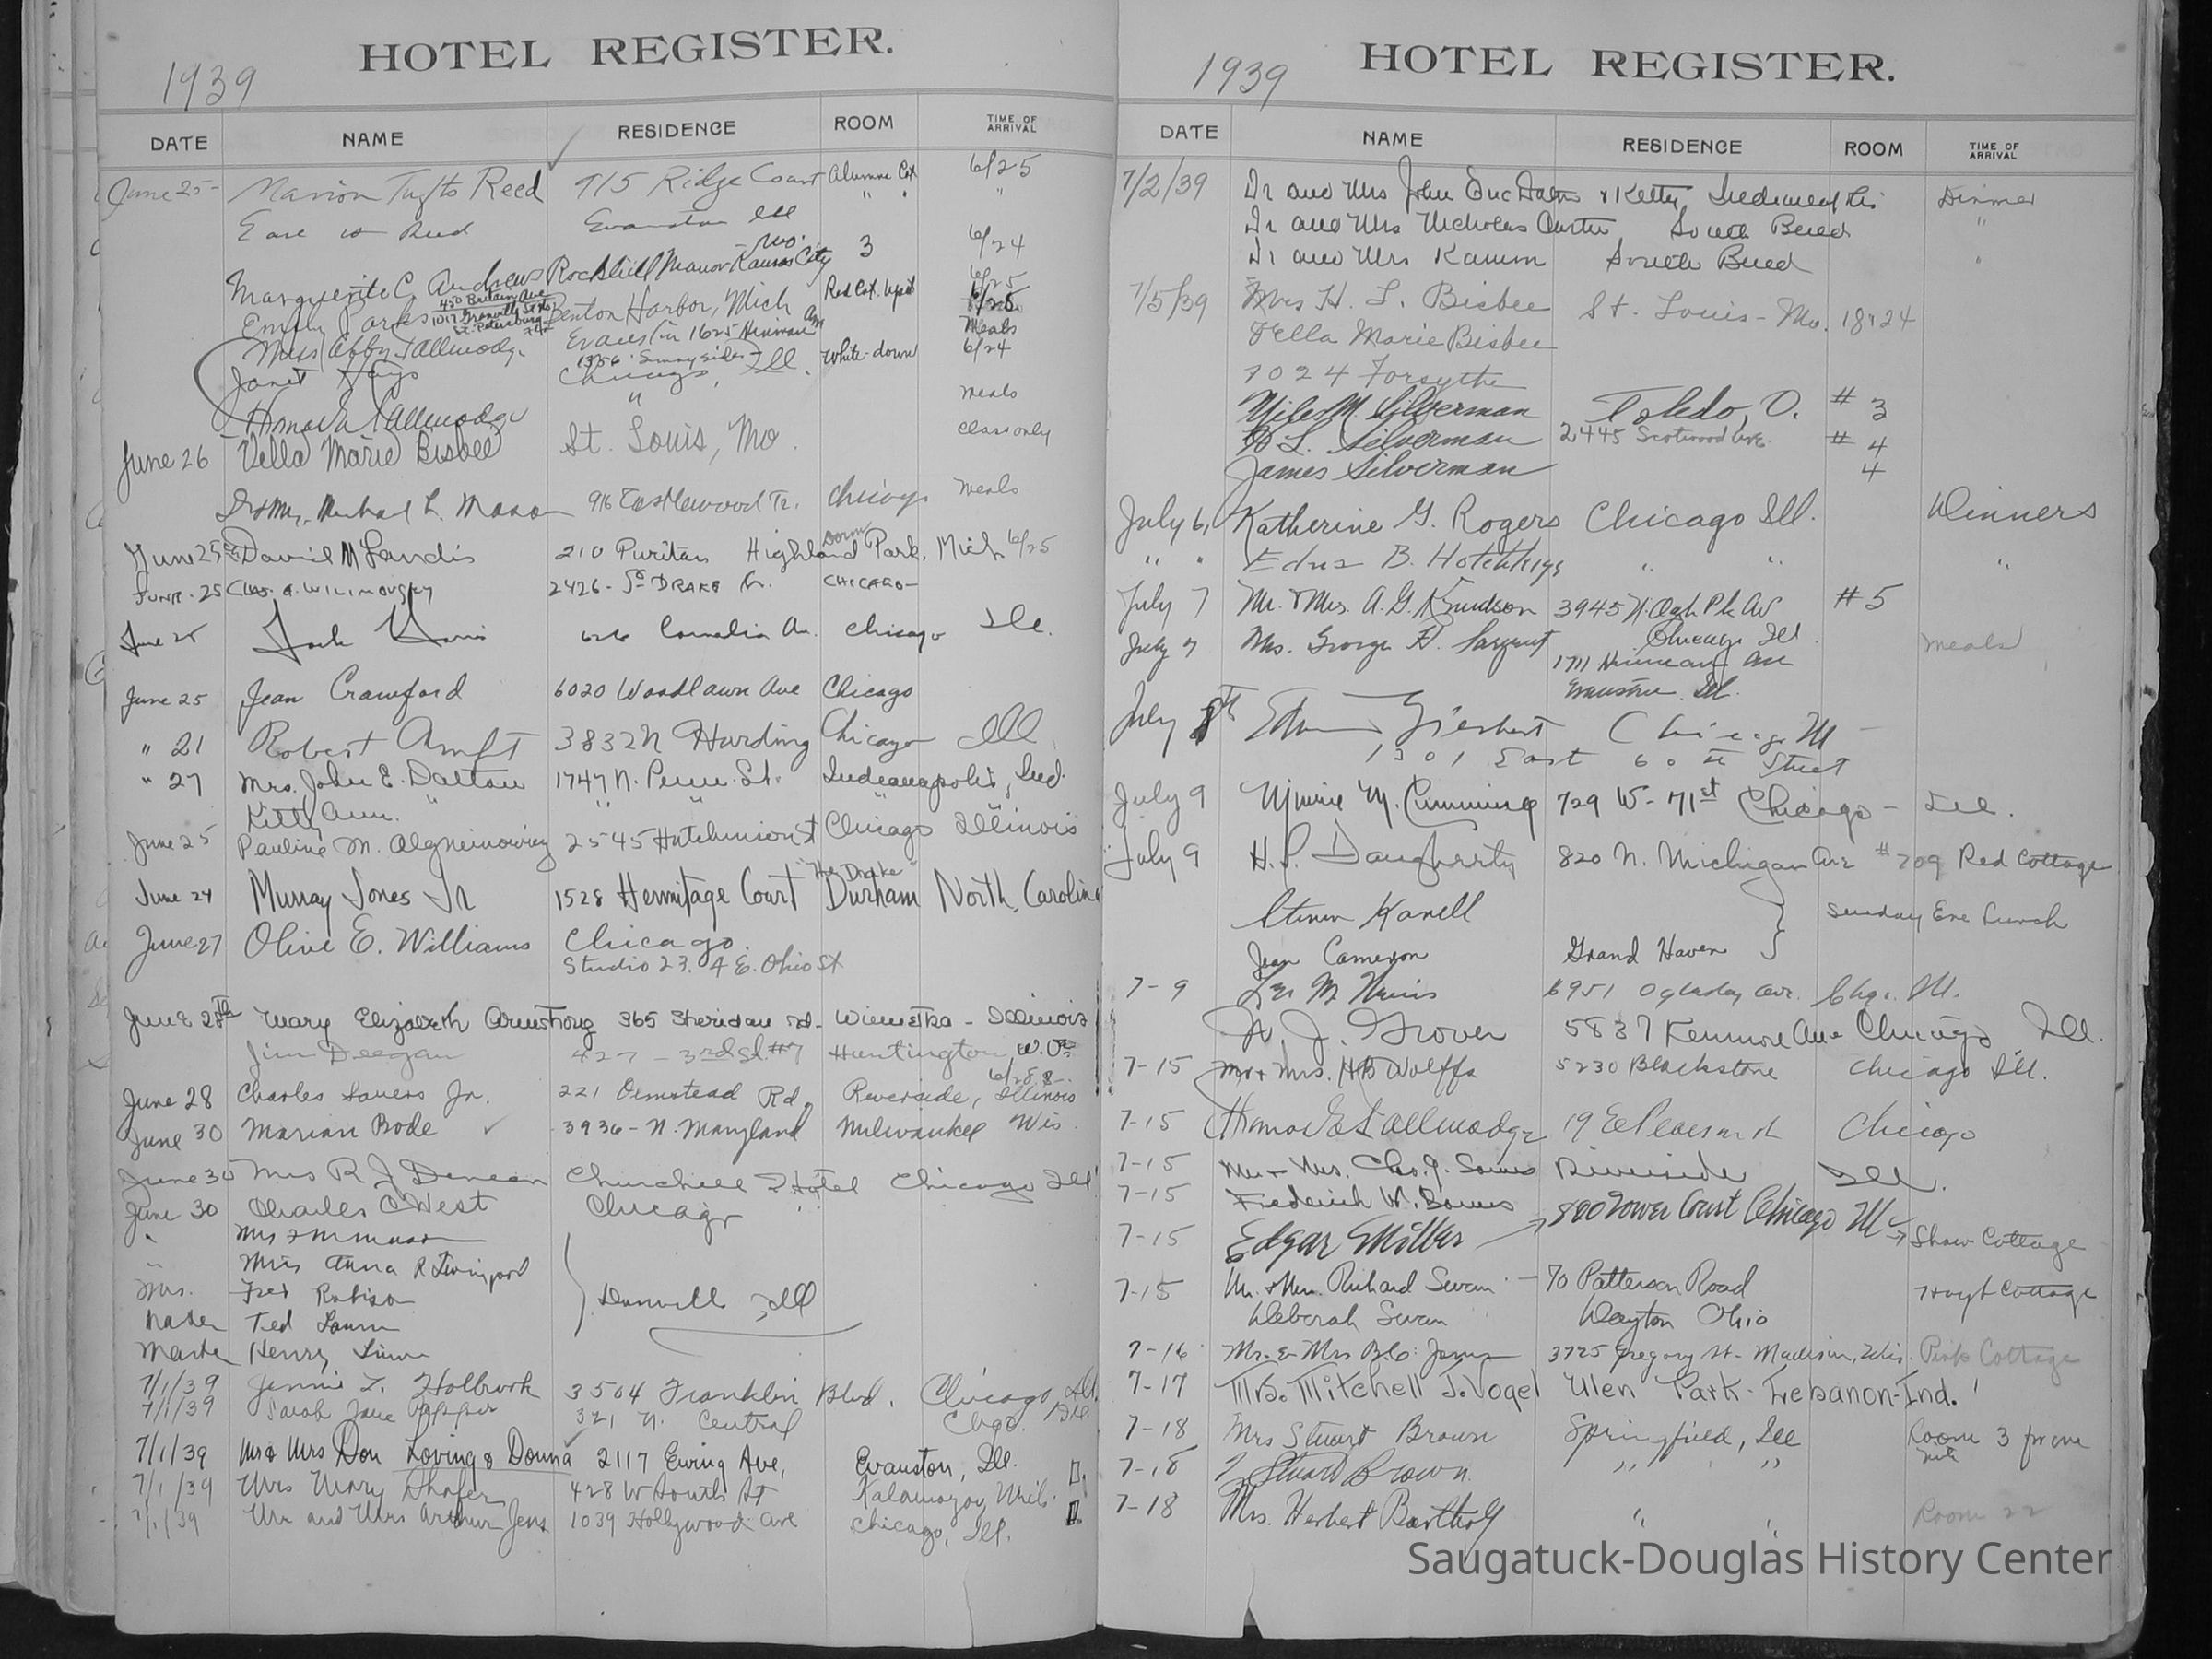 HOTEL REGISTER.
1939
DATE NAME RESIDENCE ROOM TIME OF ARRIVAL
June 25- Marion Tufts Reed 715 Ridge Court Alumnae Cot 6/25
Earl Reed Evanston Ill " " "
Marguerite C. Andrews Rockhill Manor Kansas City Mo. 3 6/24
Emily Parks Benton Harbor, Mich Red Cot. Upst 6/25
430 Britain Ave
St. Petersburg
Miss Abby Tallmadge Evanston 1625 Hinman Av Meals
Janet Hays 1356 Sunnyside Chicago, Ill. White-down 6/24
Tallmadge " Meals
June 26 Vella Marie Bisbee St. Louis, Mo. Class only
Dr & Mrs. Michael L. Mason 916 Castlewood Tr. Chicago Meals
June 25 David M Landis 210 Puritan Highland Park, Mich 6/25
Dorm
June. 25 Chas. A. Wilimovsky 2426- So Drake Av. Chicago-
June 25 Jack 626 Cornelia Av. Chicago Ill.
June 25 Jean Crawford 6020 Woodlawn Ave Chicago
" 21 Robert Amft 3832 N Harding Chicago Ill
" 27 Mrs. John E. Dalton 1747 N. Penn. St. Indianapolis, Ind.
Kitty Ann. " " " "
June 25 Pauline M. 2545 Hutchinson St Chicago Illinois
"The Drake"
June 24 Murray Jones Jr 1528 Hermitage Court Durham North Carolina
June 27 Olive E. Williams Chicago.
Studio 23. 4 E. Ohio St
June 28th Mary Elizabeth Armstrong 365 Sheridan Rd- Winnetka - Illinois
Jim Deegan 427 - 3rd St. #7 Huntington W. Va.
June 28 Charles Sauers Jr. 221 Olmstead Rd. Riverside, Illinois
June 30 Marian Bode 3936- N. Maryland Milwaukee Wis.
June 30 Mrs R J Churchill Hotel Chicago Ill
June 30 Charles C West Chicago
" Mrs
" Miss Anna R
Mrs. Fred Robison Danville, Ill
Ted
Henry
7/1/39 Jennie L. Holbrook 3504 Franklin Blvd. Chicago, Ill.
7/1/39 Sarah Jane 321 N. Central Chgo. Ill.
7/1/39 Mr & Mrs Don Loving & Donna 2117 Ewing Ave, Evanston, Ill.
7/1/39 Mrs Mary Shafer 428 W South St Kalamazoo, Mich.
7/1/39 Mr and Mrs Arthur Jens 1039 Hollywood Ave Chicago, Ill.
HOTEL REGISTER.
1939
DATE NAME RESIDENCE ROOM TIME OF ARRIVAL
7/2/39 Dr and Mrs John Eric Dalton & Kitty, Indianapolis Dinner
Dr and Mrs Nicholas South Bend "
Dr and Mrs Kamm South Bend "
7/5/39 Mrs H. L. Bisbee St. Louis- Mo. 18 & 24
Vella Marie Bisbee
7024 Forsythe
M. Silverman Toledo, O. # 3
L. Silverman 2445 Scottwood Ave. # 4
James Silverman 4
July 6, Katherine G. Rogers Chicago Ill. Dinners
" " Edna B. Hotchkiss " " "
July 7 Mr. & Mrs. A. G. Knudson 3945 N. Oak Pk Av #5
Chicago Ill.
July 7 Mrs. George H. Sargent 1711 Hinman Ave Meals
Evanston. Ill.
July 8th Giesbert Chicago Ill
1301 East 60th Street
July 9 Minnie M. Cumming 729 W- 71st Chicago - Ill.
July 9 H. P. Daugherty 820 N. Michigan Ave #709 Red Cottage
Kanell Sunday Eve Lunch
Jean Cameron Grand Haven
7-9 6951 Oglesby Ave. Chgo. Ill.
J. Grover 5837 Kenmore Ave Chicago Ill.
7-15 Mr & Mrs. H B Wolffs 5230 Blackstone Chicago Ill.
7-15 Tallmadge 19 E Pearson St Chicago
7-15 Mr & Mrs. Chas. G. Sauers Riverside Ill.
7-15 Frederick W.
7-15 Edgar Miller 800 Tower Court Chicago Ill Shaw Cottage
7-15 Mr. & Mrs. Richard Swan - 70 Patterson Road Hoyt Cottage
Deborah Swan Dayton Ohio
7-16 Mr. & Mrs 3725 Gregory St- Madison, Wis. Pink Cottage
7-17 Mrs. Mitchell J. Vogel Ulen Park- Lebanon-Ind.
7-18 Mrs Stuart Brown Springfield, Ill Room 3 for one nite
7-18 Stuart Brown " "
7-18 Mrs. Herbert Bartholf " " Room 22
Saugatuck-Douglas History Center